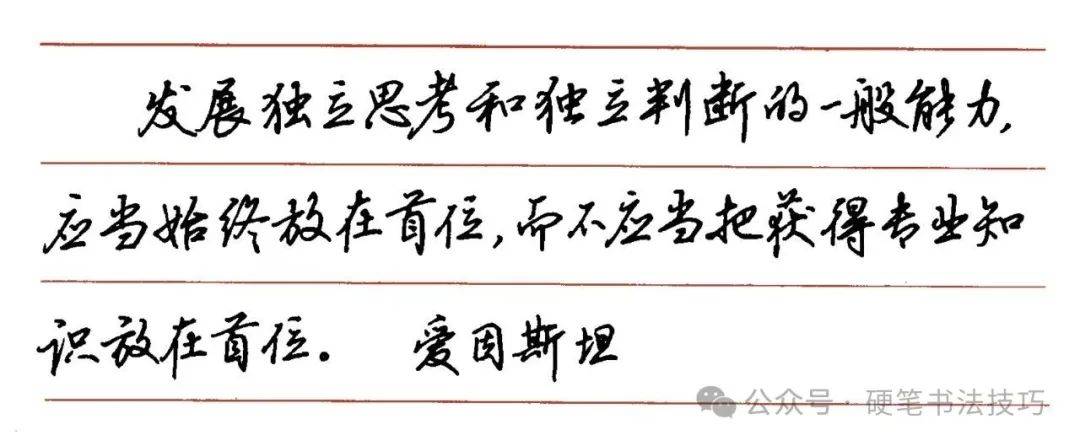 发展独立思考和独立判断的一般能力,
应当始终放在首位,而不应当把获得专业知
识放在首位。 爱因斯坦
公众号·硬笔书法技巧